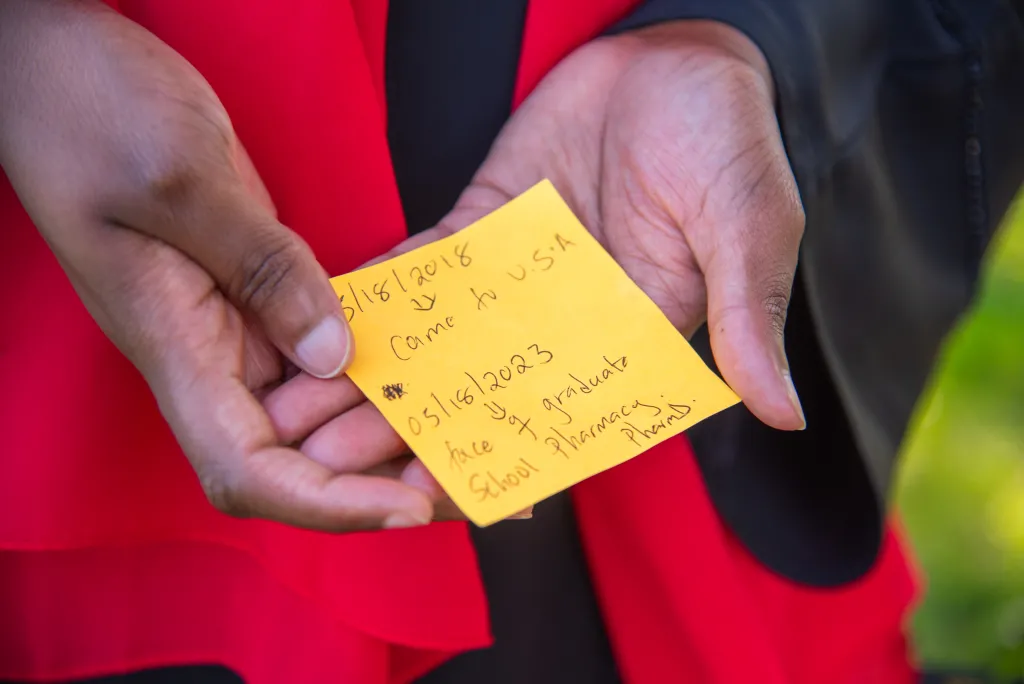 5/18/2018
↓
Came to U.S.A
05/18/2023
↓
face of graduate
School Pharmacy.
PharmD.